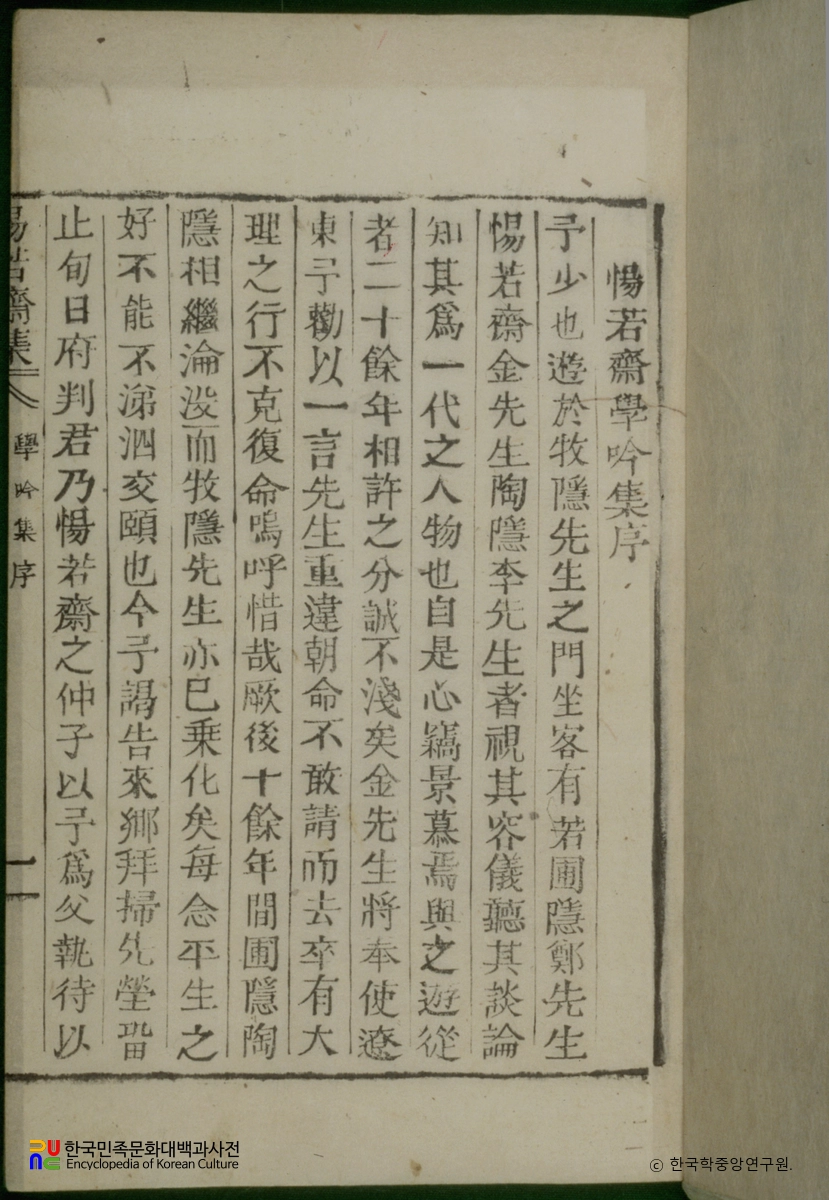 惕若齋學吟集序
予少也遊於牧隱先生之門坐客有若圃隱鄭先生
惕若齋金先生陶隱李先生者視其容儀聽其談論
知其爲一代之人物也自是心竊景慕焉與之遊從
者二十餘年相許之分誠不淺矣金先生將奉使遼
東予勸以一言先生重違朝命不敢請而去卒有大
理之行不克復命嗚呼惜哉厥後十餘年間圃隱陶
隱相繼淪没而牧隱先生亦已乗化矣每念平生之
好不能不涕泗交頤也今予謁告來鄕拜掃先塋畱
止旬日府判君乃惕若齋之仲子以予爲父執待以
惕若齋集
學吟集序
一
한국민족문화대백과사전
Encyclopedia of Korean Culture
© 한국학중앙연구원.